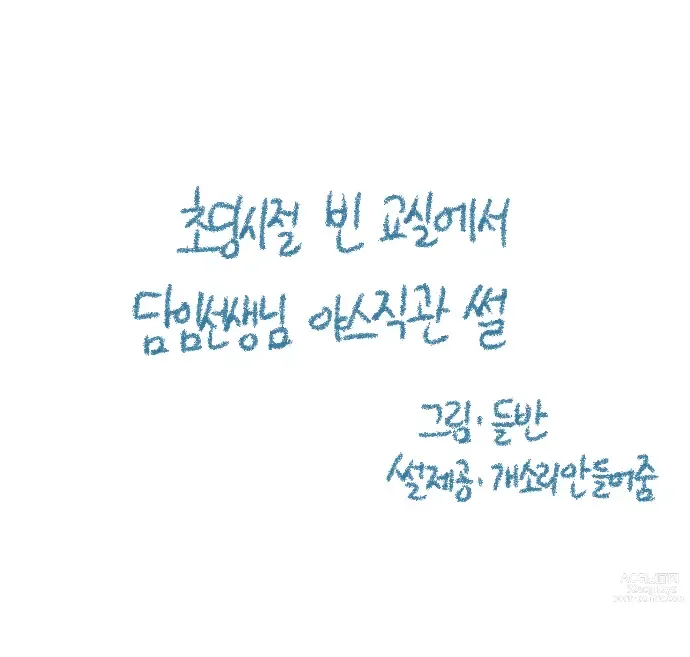 초딩시절 빈 교실에서
담임선생님 야스직관 썰
그림· 들반
썰제공· 개소리안들어줌